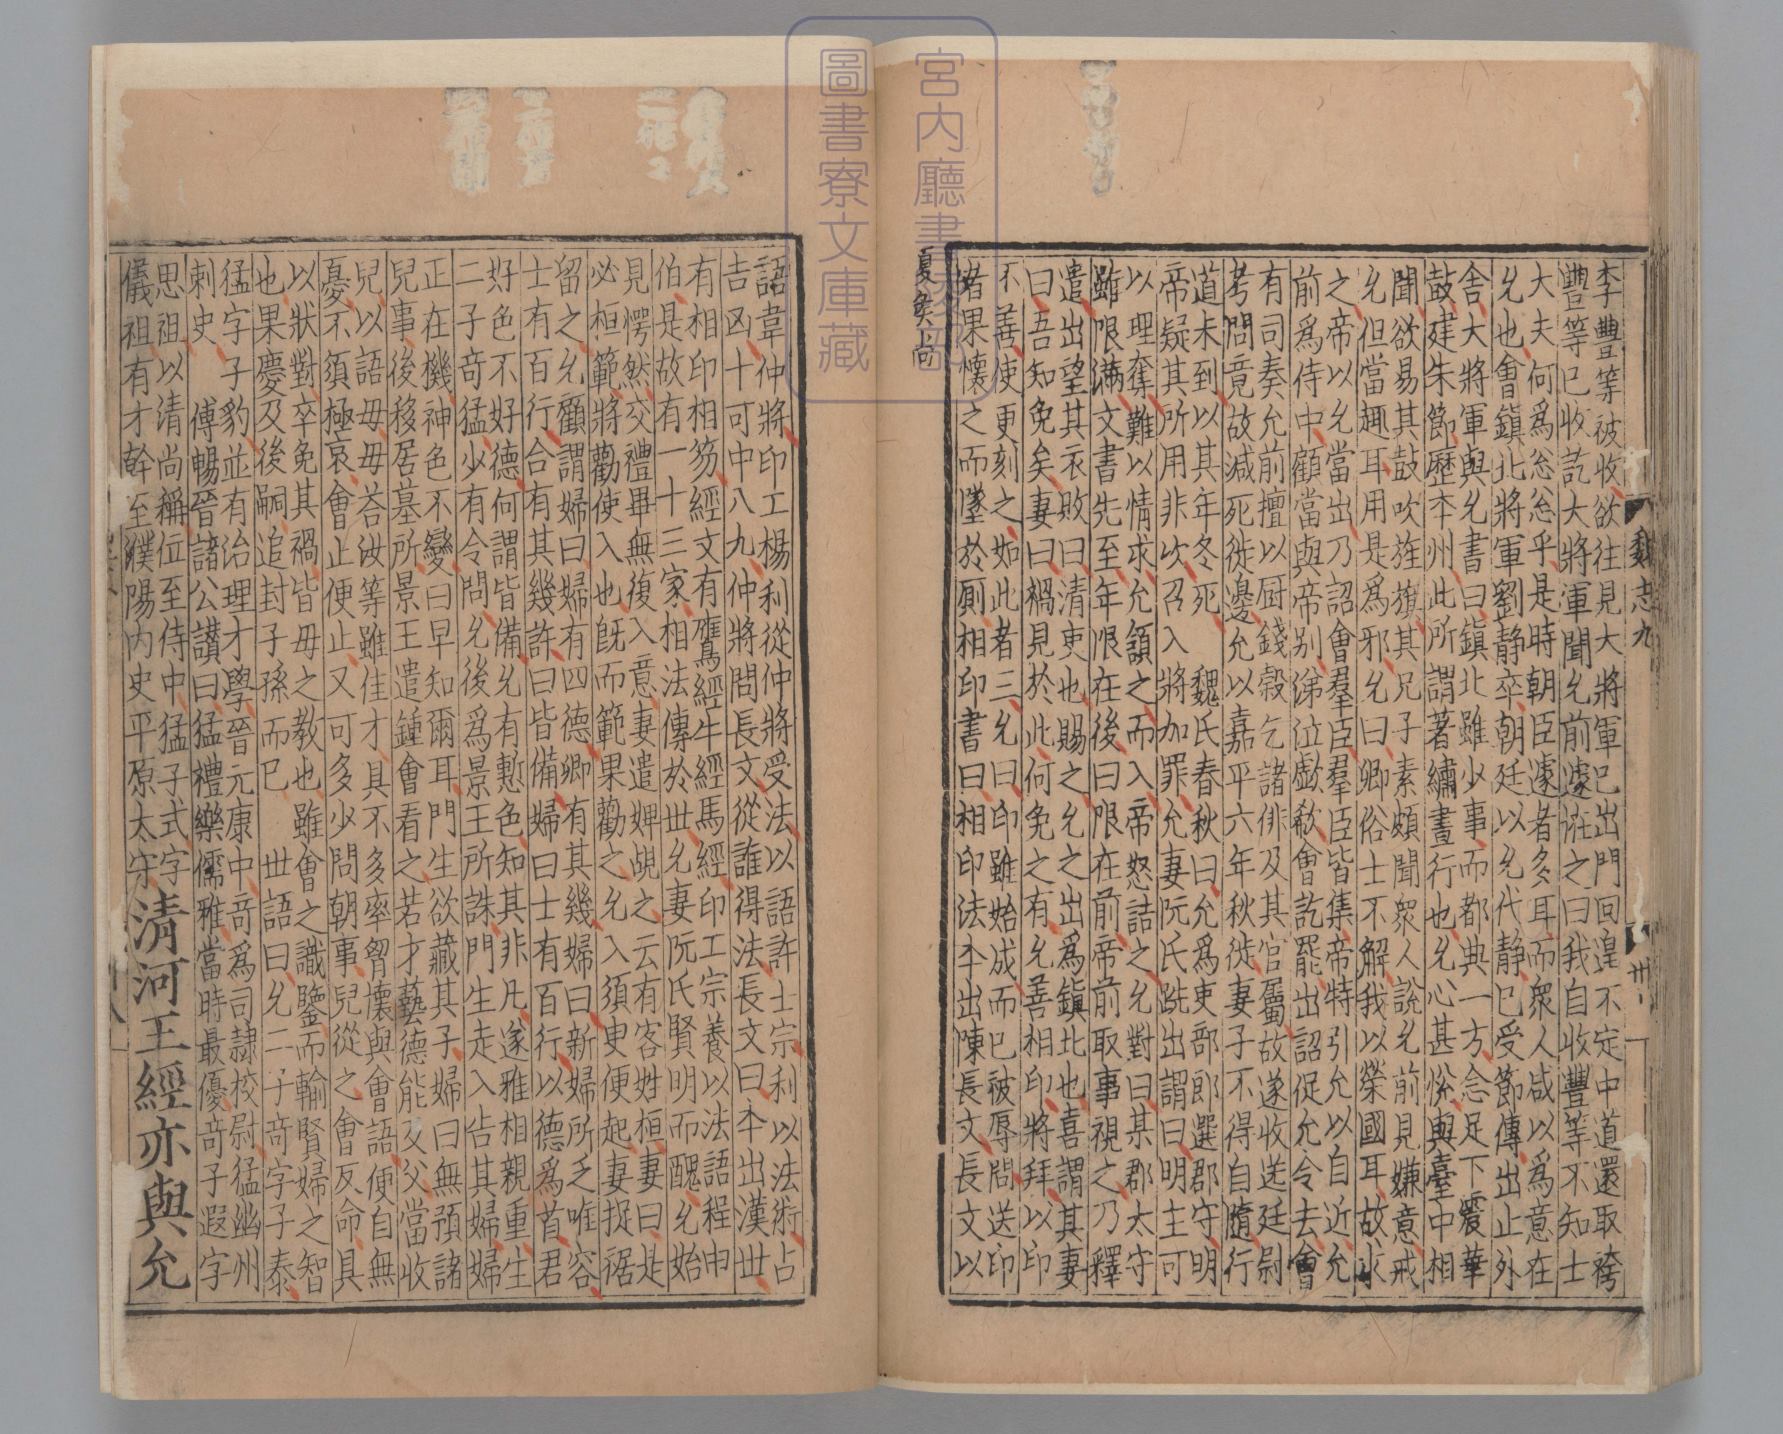 魏志九
卅
李豐等被收欲往見大將軍已出門回遑不定中道還取袴
豐等已收訖大將軍聞允前遽怪之曰我自收豐等不知士
大夫何爲忩忩乎是時朝臣遽者多耳而衆人咸以爲意在
允也會鎮北將軍劉靜卒朝廷以允代靜已受節傳出止外
舍大將軍與允書曰鎮北雖少事而都典一方念足下震華
鼓建朱節歷本州此所謂著繡晝行也允心甚恱與臺中相
聞欲易其鼓吹旌旗其兄子素頗聞衆人說允前見嫌意戒
允但當趣耳用是爲邪允曰卿俗士不解我以榮國耳故求
之帝以允當出乃詔會羣臣羣臣皆集帝特引允以自近允
前爲侍中顧當與帝別涕泣歔欷會訖罷出詔促允令去會
有司奏允前擅以厨錢穀乞諸俳及其官屬故遂收送廷尉
考問竟故減死徙邊允以嘉平六年秋徙妻子不得自隨行
道未到以其年冬死 魏氏春秋曰允爲吏部郎選郡守明
帝疑其所用非次召入將加罪允妻阮氏跣出謂曰明主可
以理奪難以情求允頷之而入帝怒詰之允對曰某郡太守
雖限滿文書先至年限在後曰限在前帝前取事視之乃釋
遣出望其衣敗曰清吏也賜之允之出爲鎮北也喜謂其妻
曰吾知免矣妻曰禍見於此何免之有允善相印將拜以印
不善使更刻之如此者三允曰印雖始成而已被辱問送印
者果懷之而墜於厠相印書曰相印法本出陳長文長文以
夏矦尚
宮内廳書陵部
圖書寮文庫藏
語韋仲將印工楊利從仲將受法以語許士宗利以法術占
吉凶十可中八九仲將問長文從誰得法長文曰本出漢世
有相印相笏經文有鷹經牛經馬經印工宗養以法語程申
伯是故有一十三家相法傳於世允妻阮氏賢明而醜允始
見愕然交禮畢無復入意妻遣婢覘之云有客姓桓妻曰是
必桓範將勸使入也旣而範果勸之允入須臾便起妻捉裾
留之允顧謂婦曰婦有四德卿有其幾婦曰新婦所乏唯容
士有百行合有其幾許曰皆備婦曰士有百行以德爲首君
好色不好德何謂皆備允有慙色知其非凡遂雅相親重生
二子奇猛少有令問允後爲景王所誅門生走入告其婦婦
正在機神色不變曰早知爾耳門生欲藏其子婦曰無預諸
兒事後移居墓所景王遣鍾會看之若才藝德能及父當收
兒以語母母荅汝等雖佳才具不多率胷懷與會語便自無
憂不須極哀會止便止又可多少問朝事兒從之會反命具
以狀對卒免其禍皆母之教也雖會之識鑒而輸賢婦之智
也果慶及後嗣追封子孫而已 世語曰允二子奇字子泰
猛字子豹並有治理才學晉元康中奇爲司隷校尉猛幽州
刺史 傅暢晉諸公讃曰猛禮樂儒雅當時最優奇子遐字
思祖以清尚稱位至侍中猛子式字
儀祖有才幹至濮陽内史平原太守
清河王經亦與允